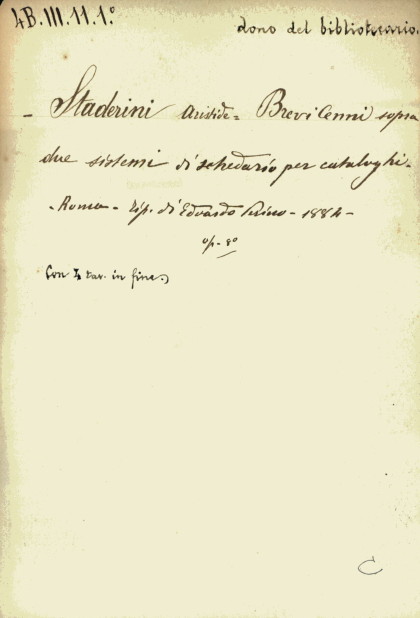 4B.III.11.1.°
dono del bibliotecario.
- Staderini Aristide = Brevi Cenni sopra
due sistemi di schedario per cataloghi -
- Roma - Tip. di Edoardo Perino - 1884 -
op. 8°
Con 4 tav. in fine.
C